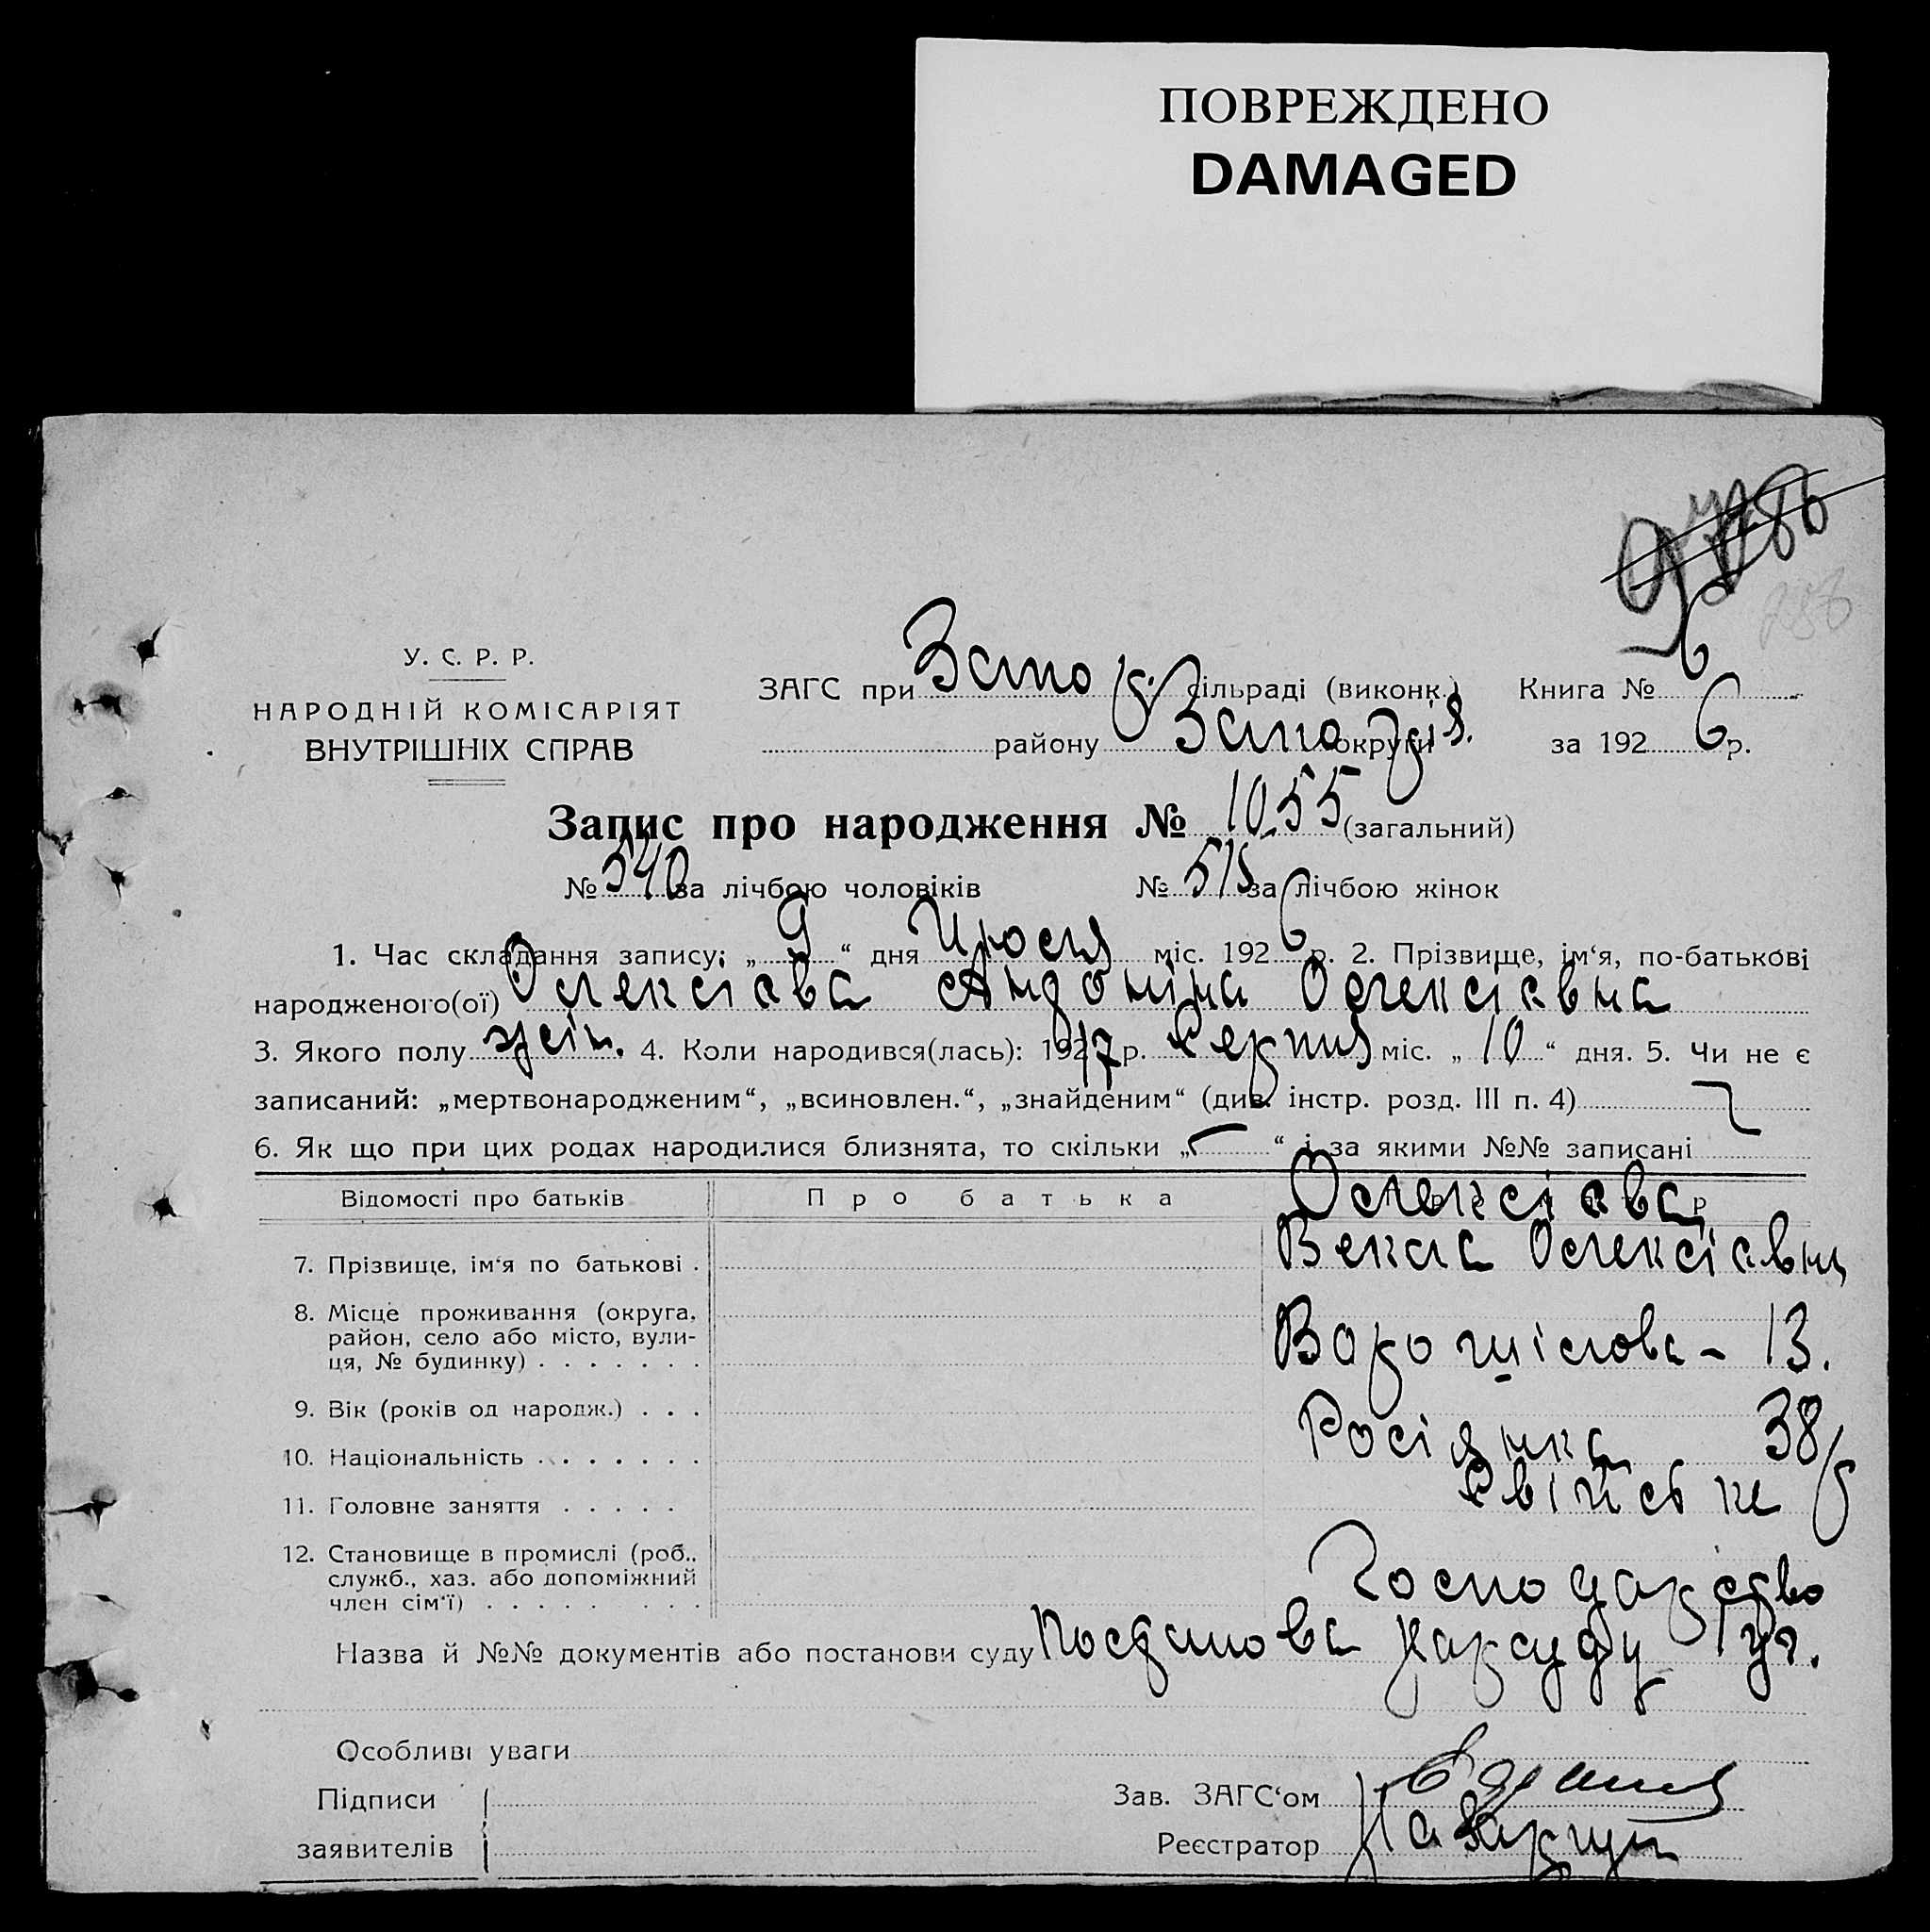 ПОВРЕЖДЕНО
DAMAGED
286
У. С. Р. Р.
НАРОДНІЙ КОМІСАРІЯТ
ВНУТРІШНІХ СПРАВ
ЗАГС при сільраді (виконк.) Книга № 6
району округи за 1926 р.
Запис про народження № 1055 (загальний)
№ 540 за лічбою чоловіків № 515 за лічбою жінок
1. Час складання запису: „ 9 “ дня міс. 1926 р. 2. Прізвище, ім‘я, по-батькові
народженого(ої) Олексієва Андоніна Олексієвна
3. Якого полу жін. 4. Коли народився(лась): 1917 р. Серпня міс. „ 10 “ дня. 5. Чи не є
записаний: „мертвонародженим“, „всиновлен.“, „знайденим“ (див. інстр. розд. III п. 4)
6. Як що при цих родах народилися близнята, то скільки „ “ і за якими №№ записані
Відомості про батьків Про батька Олексієва
7. Прізвище, ім‘я по батькові . Векла Олексієвна
8. Місце проживання (округа,
район, село або місто, вули-
ця, № будинку) . . . . . . . Ворошілова - 13.
9. Вік (років од народж.) . . . 38
10. Національність . . . . . . . Росіянка
11. Головне заняття . . . . . Свійське
12. Становище в промислі (роб.,
служб., хаз. або допоміжний
член сім‘ї) . . . . . . . . Господарство
Назва й №№ документів або постанови суду Постанова Нарсуду 1 уч.
Особливі уваги
Підписи Зав. ЗАГС‘ом
заявителів Реєстратор